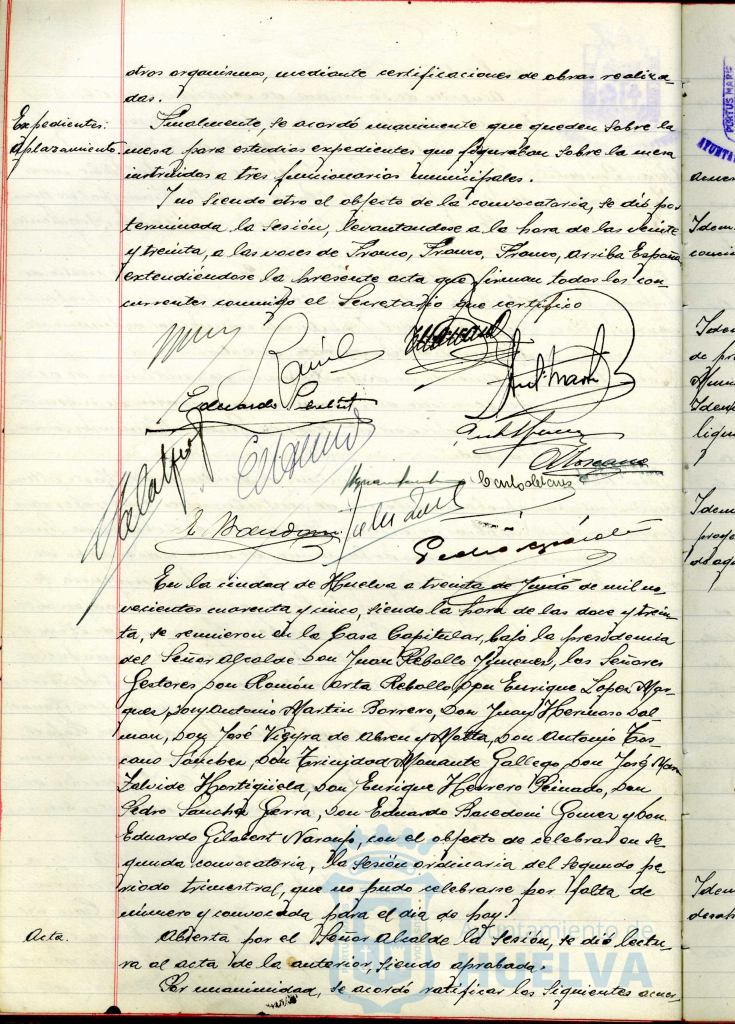 otros organismos, mediante certificaciones de obras realiza-
das.
Expedientes.
Aplazamiento.
Finalmente, se acordó unanimente que queden sobre la
mesa para estudios expedientes que figuraban sobre la mesa
instruidos a tres funcionarios municipales.
Y no siendo otro el objeto de la convocatoria, se dió por
terminada la sesión, levantandose a la hora de las veinte
y treinta, a las voces de Franco, Franco, Franco, Arriba España
extendiéndose la presente acta que firman todos los con-
currentes conmigo el Secretario que certifico
Eduardo
Pedro
En la ciudad de Huelva a treinta de Junio de mil no-
vecientos cuarenta y cinco, siendo la hora de las doce y trein-
ta, se reunieron en la Casa Capitular, bajo la presidencia
del Señor Alcalde Don Juan Rebollo Jimenez, los Señores
Gestores Don Ramón Arta Rebollo, Don Enrique Lopez Mar-
quez, Don Antonio Martin Borrero, Don Juan Hermoso Dal-
man, Don José Vieyra de Abreu y Motta, Don Antonio Tos-
cano Sánchez, Don Trinidad Monante Gallego, Don José
Zalvide Hortigüela, Don Enrique Herrero Peinado, Don
Pedro Sanchez Gerra, Don Eduardo Bacedoni Gomez y Don
Eduardo Gilabert Naranjo, con el objeto de celebrar en se-
gunda convocatoria, la sesión ordinaria del segundo pe-
riodo trimestral, que no pudo celebrarse por falta de
número y convocada para el dia de hoy.
Acta.
Abierta por el Señor Alcalde la sesión, se dió lectu-
ra al acta de la anterior, siendo aprobada.
Por unanimidad, se acordó ratificar los siguientes acuer-
Ayuntamiento de
HUELVA
PORTUS MARIS
AYUNTA
acuer
Idem
Idem
de pr
Idem
Idem
Idem